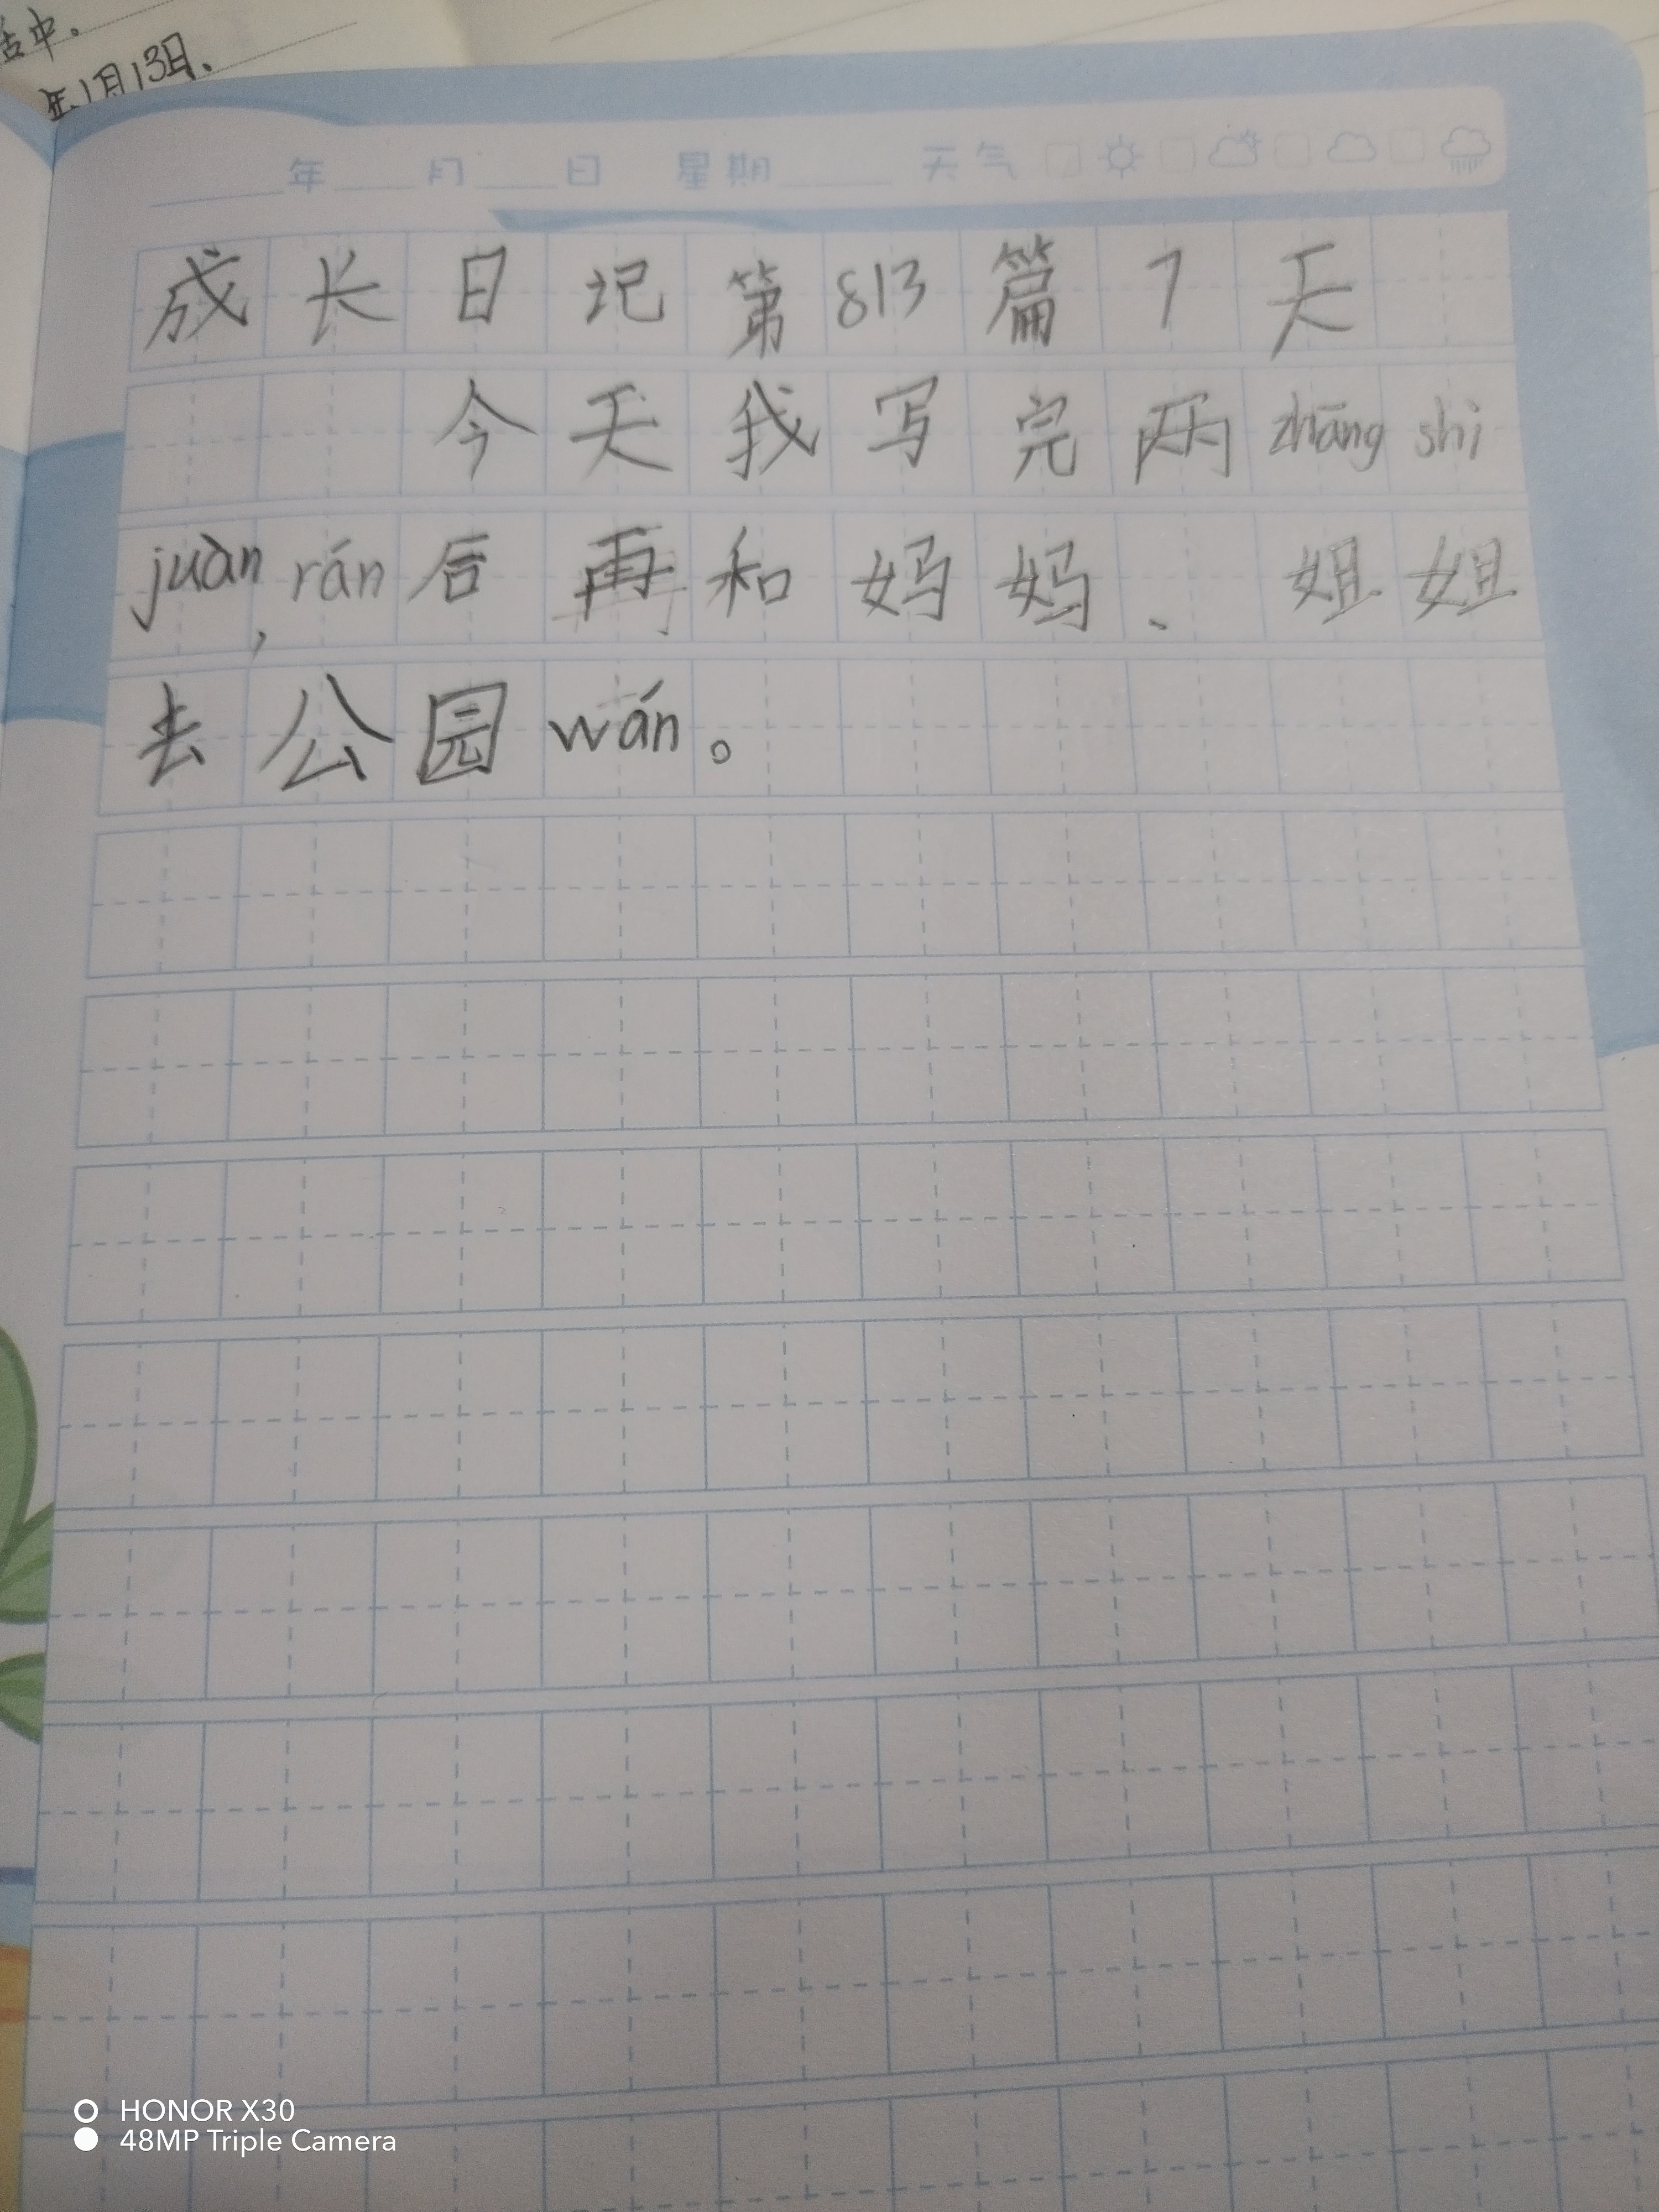 活中。
年1月13日.
年 月 日 星期 天气
成长日记第813篇7天
今天我写完两zhāng shì
juàn,rán后再和妈妈、姐姐
去公园wán。
HONOR X30
48MP Triple Camera